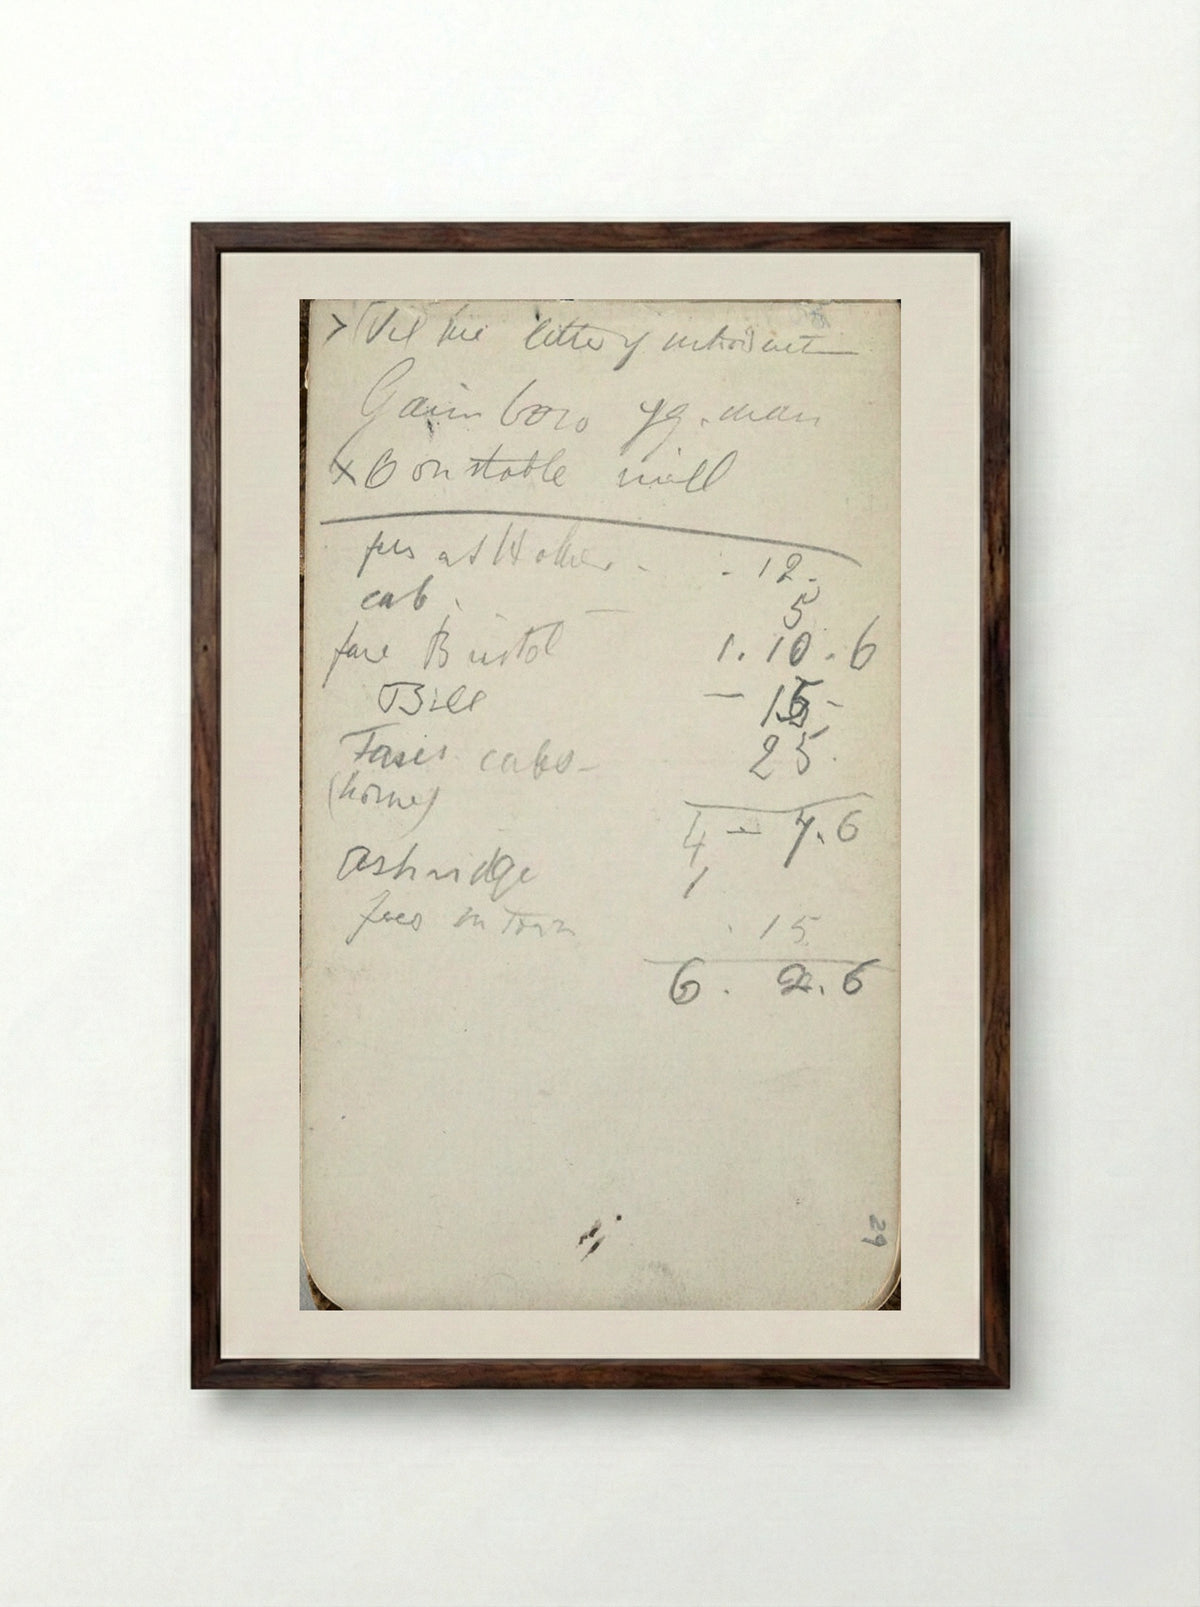 letter of introduct
Gainsboro yg. man
x Constable mill
fees at Holker - . 12.
cab. — 5
fare Bristol 1. 10. 6
Bill — 15 -
Fares cabs - 25.
(home)
4 - 7. 6
Ashridge 1
fees in Town . 15
6. 2. 6
29